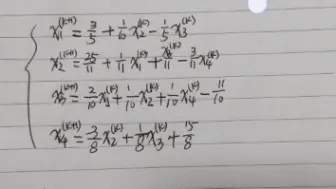 x₁^(k+1) = 3/5 + 1/10 x₂^(k) - 1/5 x₃^(k)
x₂^(k+1) = 25/11 + 1/11 x₁^(k) + x₃^(k)/11 - 3/11 x₄^(k)
x₃^(k+1) = 2/10 x₁^(k) + 1/10 x₂^(k) + 1/10 x₄^(k) - 11/10
x₄^(k+1) = 3/8 x₂^(k) + 1/8 x₃^(k) + 15/8